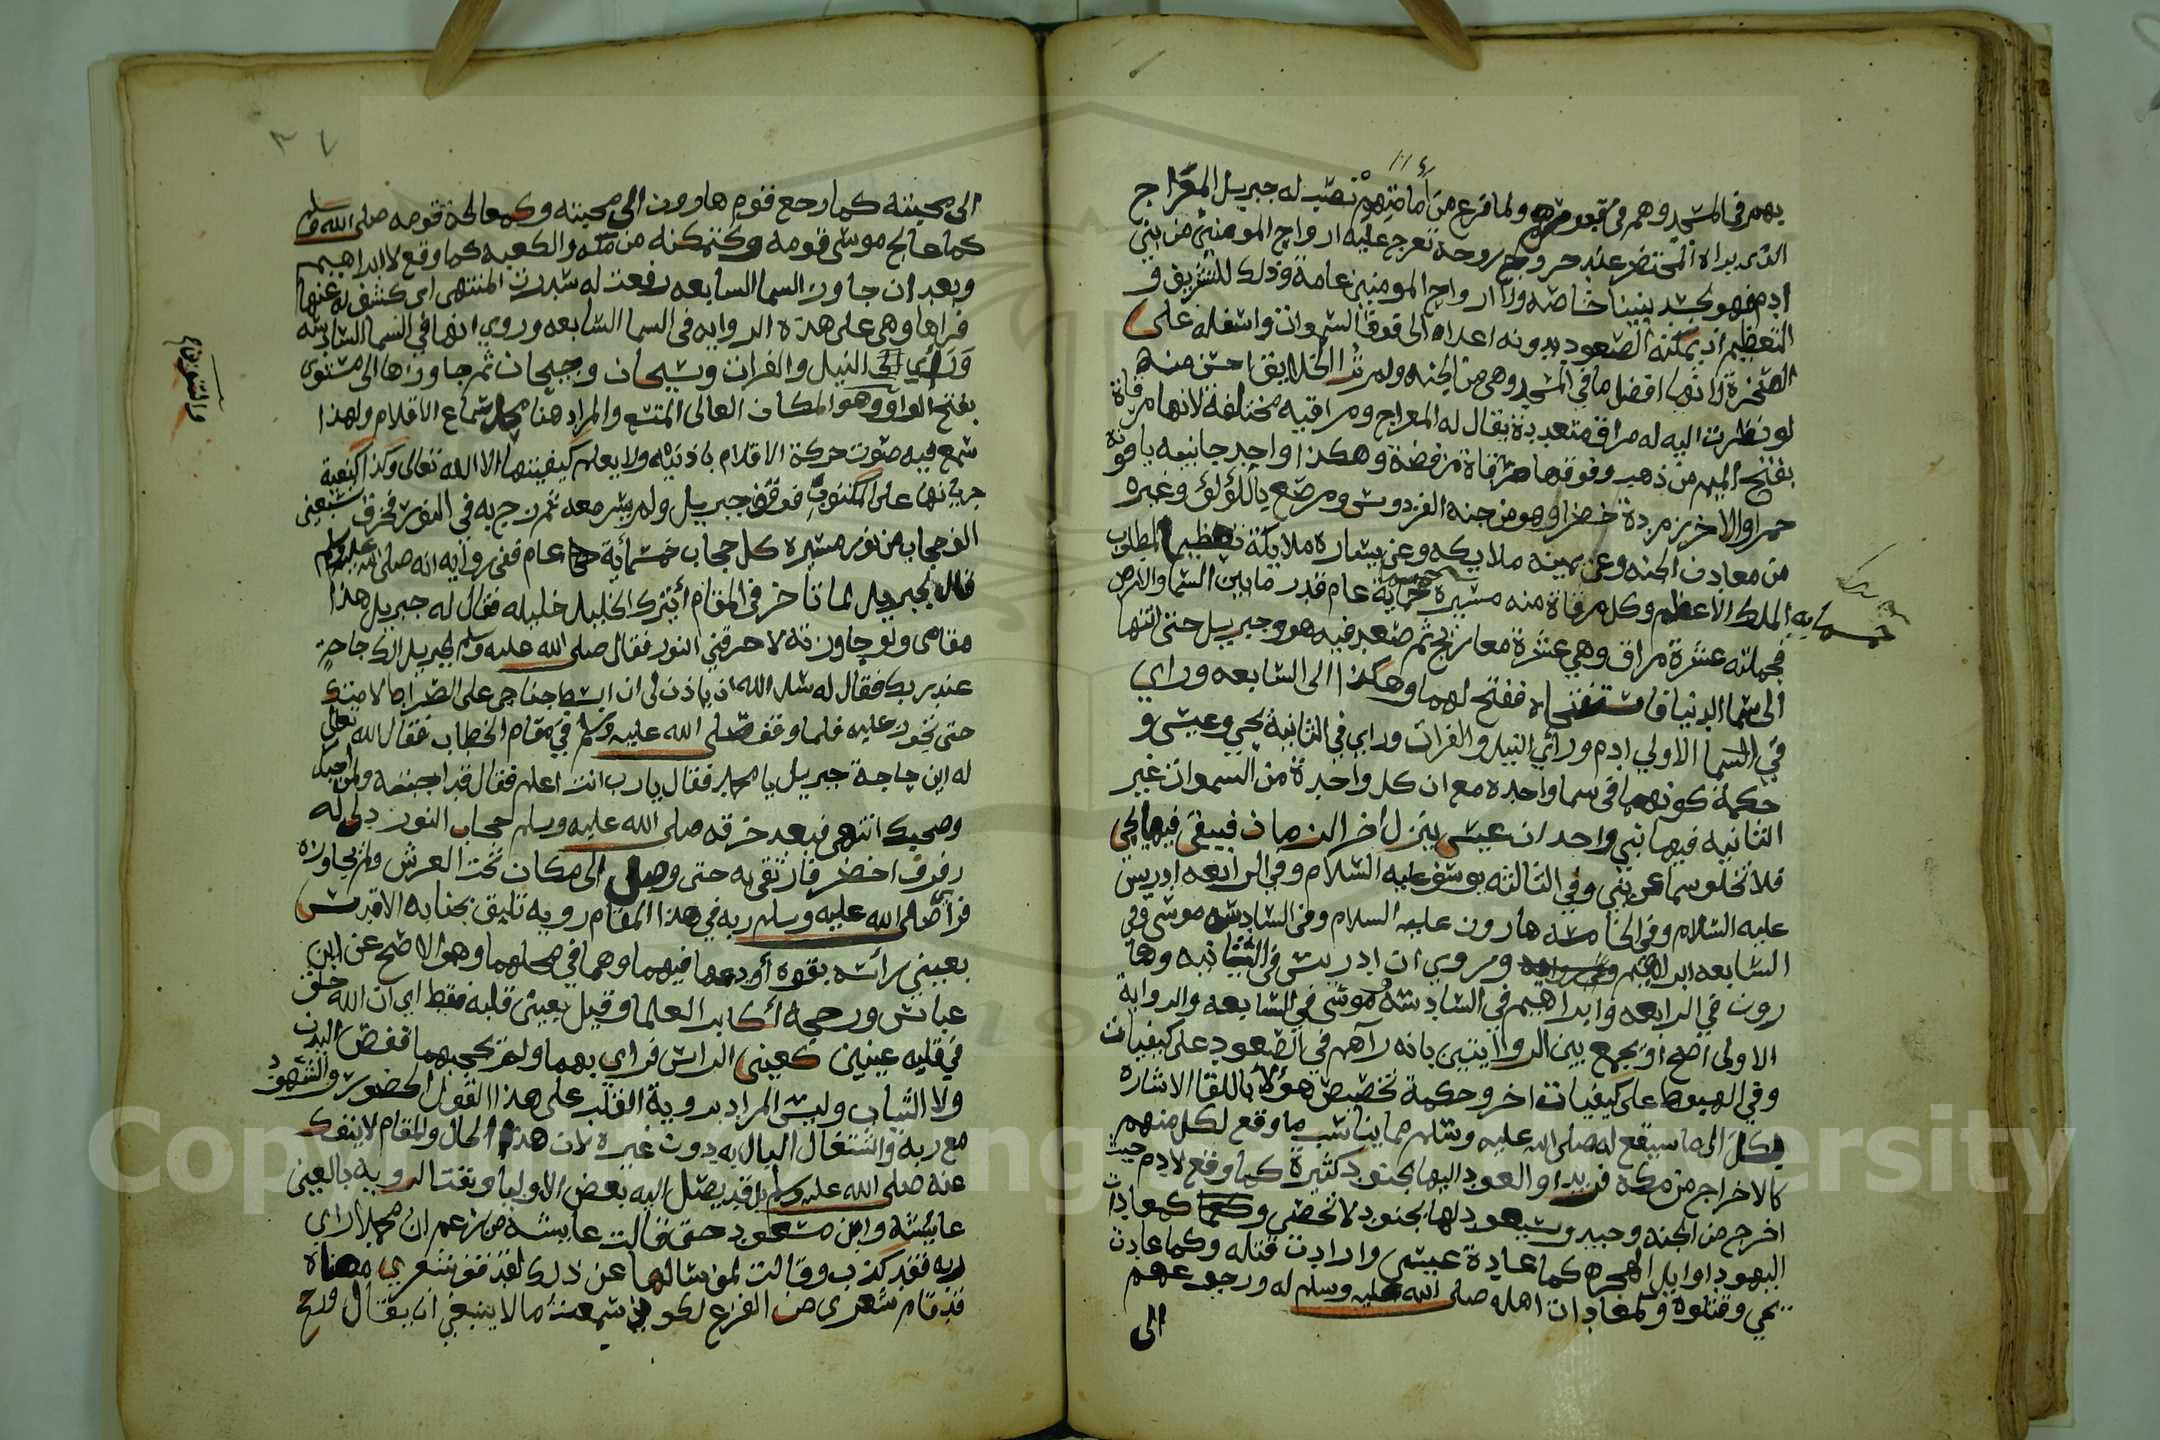 بهم في المسجد وهم في قبورهم ولما فرغ من امامتهم نصب له جبريل المعراج
الذي يراه المحتضر عند خروج روحه تعرج عليه ارواح المومنين من بني
ادم فهو لجسد نبينا خاصة ولارواح المومنين عامة وذلك للتشريف و
التعظيم اذ يمكنه الصعود بدونه اعلاه الى فوق السموات واسفله على
الصخرة لانها افضل ما في المسجد وهي من الجنه ولم تر الخلايق احسن منه
لو نظرت اليه له مراق متعددة يقال له المعراج ومراقيه مختلفة لانها مرقاة
بفتح الميم من ذهب وفوقها مرقاة من فضة وهكذا واحد جانبيه ياقوتة
حمرا والاخر زمردة خضرا وهو من جنه الفردوس ومرصع باللؤلؤ وغيره
من معادن الجنه وعن يمينه ملايكه وعن يساره ملايكة تعظيما لمطلوب
الملك الاعظم وكل مرقاة منه مسيرة خمسماية عام قدر ما بين السما والارض
خمسمايه
فجملته عشرة مراق وهي عشرة معاريج ثم صعد فيه هو وجبريل حتى انتها
الى سما الدنيا فاستفتحاه ففتح لهما وهكذا الى السابعه وراي
في السما الاولي ادم وراي النيل والفرات وراي في الثانية يحي وعيسى و
حكمة كونهما في سما واحده مع ان كل واحدة من السموات غير
الثانيه فيها نبي واحد ان عيسى ينزل اخر الزمان فيبقى فيها يحي
فلا تخلو سما عن نبي وفي الثالثه يوسف عليه السلام وفي الرابعه ادريس
عليه السلام وفي الخامسه هارون عليه السلام وفي السادسه موسى وفي
السابعه ابراهيم وروي ان ادريس في الثانيه وها
رون في الرابعه وابراهيم في السادسة وموسى في السابعه والرواية
الاولى اصح او يجمع بين الروايتين بانه رآهم في الصعود على كيفيات
وفي الهبوط على كيفيات اخر وحكمة تخصيص هؤلا باللقا الاشارة
بكل الى ما سيقع له صلى الله عليه وسلم مما يناسب ما وقع لكل منهم
كالاخراج من مكه والعود اليها بجنود كثيرة كما وقع لادم حيث
اخرج من الجنه وسيعود لها بجنود لا تحصى وكمعادات
اليهود اوايل الهجره كما عادة عيسى وارادت قتله وكما عادت
يحي وقتلوه ولمعادات اهله صلى الله عليه وسلم له ورجوعهم
الى
الى محبته كما رجع قوم هارون الى محبته وكمعالجة قومه صلى الله عليه وسلم
كما عالج موسى قومه وكتمكنه من مكة والكعبه كما وقع لابراهيم
وبعد ان جاوز السما السابعه رفعت له سدرت المنتهى اي كشف له عنها
فراها وهي على هذه الروايه في السما السابعه وروي انها في السما السادسة
وراي النيل والفرات وسيحان وجيحان ثم جاوزها الى مستوى
بفتح الواو وهو المكان العالي المتسع والمراد هنا محل سماع الاقلام ولهذا
سمع فيه صوت حركة الاقلام باذنيه ولا يعلم كيفيتها الا الله تعالى وكذا كيفية
جريانها على المكتوب فوقف جبريل ولم يسر معه ثم زج به في النور فخرق سبعين
الف حجاب من نور مسيرة كل حجاب خمسمأية عام ففي روايه انه صلى الله عليه وسلم
قال لجبريل لما تاخر في المقام أيترك الخليل خليله فقال له جبريل هذا
مقامي ولو جاوزته لاحرقني النور فقال صلى الله عليه وسلم لجبريل الك حاجة
عند ربك فقال له سل الله ان ياذن لي ان ابسط جناحي على الصراط لامتك
حتى تجوز عليه فلما وقف صلى الله عليه وسلم في مقام الخطاب فقال الله تعالى
له اين حاجة جبريل يا محمد فقال يارب انت اعلم فقال قد اجبته ولمن احبك
وصحبك انتهى فبعد خرقه صلى الله عليه وسلم حجاب النور دلى له
رفرف اخضر فارتقى به حتى وصل الى مكان تحت العرش ولم يجاوزه
فرأى صلى الله عليه وسلم ربه في هذا المقام رويه تليق بجنابه الاقدس
بعيني رأسه بقوه أودعها فيهما وهما في محلهما وهو الاصح عن ابن
عباس ورجحه أكابر العلما وقيل بعيني قلبه فقط اي ان الله خلق
في قلبه عينين كعيني الراس فراي بهما ولم يحجبهما قفص البدن
ولا الثياب وليس المراد بروية القلب على هذا القول الحضور والشهود
مع ربه واشتغال البال به دون غيره لان هذا الحال والمقام لا ينفك
عنه صلى الله عليه وسلم بل قد يصل اليه بعض الاوليا ونفت الرويه بالعين
عايشه وابن مسعود حتى قالت عايشه من زعم ان محمدا راي
ربه فقد كذب وقالت لمن سالها عن ذلك لقد قف شعري معناه
قد قام شعري من الفزع لكوني سمعت ما لا ينبغي ان يقال ورجح